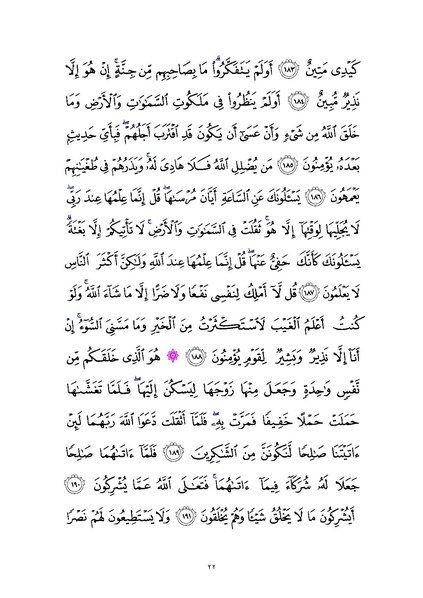 كَيْدِى مَتِينٌ ﴿١٨٣﴾ أَوَلَمْ يَتَفَكَّرُوا۟ ۗ مَا بِصَاحِبِهِم مِّن جِنَّةٍ ۚ إِنْ هُوَ إِلَّا
نَذِيرٌ مُّبِينٌ ﴿١٨٤﴾ أَوَلَمْ يَنظُرُوا۟ فِى مَلَكُوتِ ٱلسَّمَـٰوَٰتِ وَٱلْأَرْضِ وَمَا
خَلَقَ ٱللَّهُ مِن شَىْءٍ وَأَنْ عَسَىٰٓ أَن يَكُونَ قَدِ ٱقْتَرَبَ أَجَلُهُمْ ۖ فَبِأَىِّ حَدِيثٍۭ
بَعْدَهُۥ يُؤْمِنُونَ ﴿١٨٥﴾ مَن يُضْلِلِ ٱللَّهُ فَلَا هَادِىَ لَهُۥ ۚ وَيَذَرُهُمْ فِى طُغْيَـٰنِهِمْ
يَعْمَهُونَ ﴿١٨٦﴾ يَسْـَٔلُونَكَ عَنِ ٱلسَّاعَةِ أَيَّانَ مُرْسَىٰهَا ۖ قُلْ إِنَّمَا عِلْمُهَا عِندَ رَبِّى ۖ
لَا يُجَلِّيهَا لِوَقْتِهَآ إِلَّا هُوَ ۚ ثَقُلَتْ فِى ٱلسَّمَـٰوَٰتِ وَٱلْأَرْضِ ۚ لَا تَأْتِيكُمْ إِلَّا بَغْتَةً ۗ
يَسْـَٔلُونَكَ كَأَنَّكَ حَفِىٌّ عَنْهَا ۖ قُلْ إِنَّمَا عِلْمُهَا عِندَ ٱللَّهِ وَلَـٰكِنَّ أَكْثَرَ ٱلنَّاسِ
لَا يَعْلَمُونَ ﴿١٨٧﴾ قُل لَّآ أَمْلِكُ لِنَفْسِى نَفْعًا وَلَا ضَرًّا إِلَّا مَا شَآءَ ٱللَّهُ ۚ وَلَوْ
كُنتُ أَعْلَمُ ٱلْغَيْبَ لَٱسْتَكْثَرْتُ مِنَ ٱلْخَيْرِ وَمَا مَسَّنِىَ ٱلسُّوٓءُ ۚ إِنْ
أَنَا۠ إِلَّا نَذِيرٌ وَبَشِيرٌ لِّقَوْمٍ يُؤْمِنُونَ ﴿١٨٨﴾ ۞ هُوَ ٱلَّذِى خَلَقَكُم مِّن
نَّفْسٍ وَٰحِدَةٍ وَجَعَلَ مِنْهَا زَوْجَهَا لِيَسْكُنَ إِلَيْهَا ۖ فَلَمَّا تَغَشَّىٰهَا
حَمَلَتْ حَمْلًا خَفِيفًا فَمَرَّتْ بِهِۦ ۖ فَلَمَّآ أَثْقَلَت دَّعَوَا ٱللَّهَ رَبَّهُمَا لَئِنْ
ءَاتَيْتَنَا صَـٰلِحًا لَّنَكُونَنَّ مِنَ ٱلشَّـٰكِرِينَ ﴿١٨٩﴾ فَلَمَّآ ءَاتَىٰهُمَا صَـٰلِحًا
جَعَلَا لَهُۥ شُرَكَآءَ فِيمَآ ءَاتَىٰهُمَا ۚ فَتَعَـٰلَى ٱللَّهُ عَمَّا يُشْرِكُونَ ﴿١٩٠﴾
أَيُشْرِكُونَ مَا لَا يَخْلُقُ شَيْـًٔا وَهُمْ يُخْلَقُونَ ﴿١٩١﴾ وَلَا يَسْتَطِيعُونَ لَهُمْ نَصْرًا
٢٢